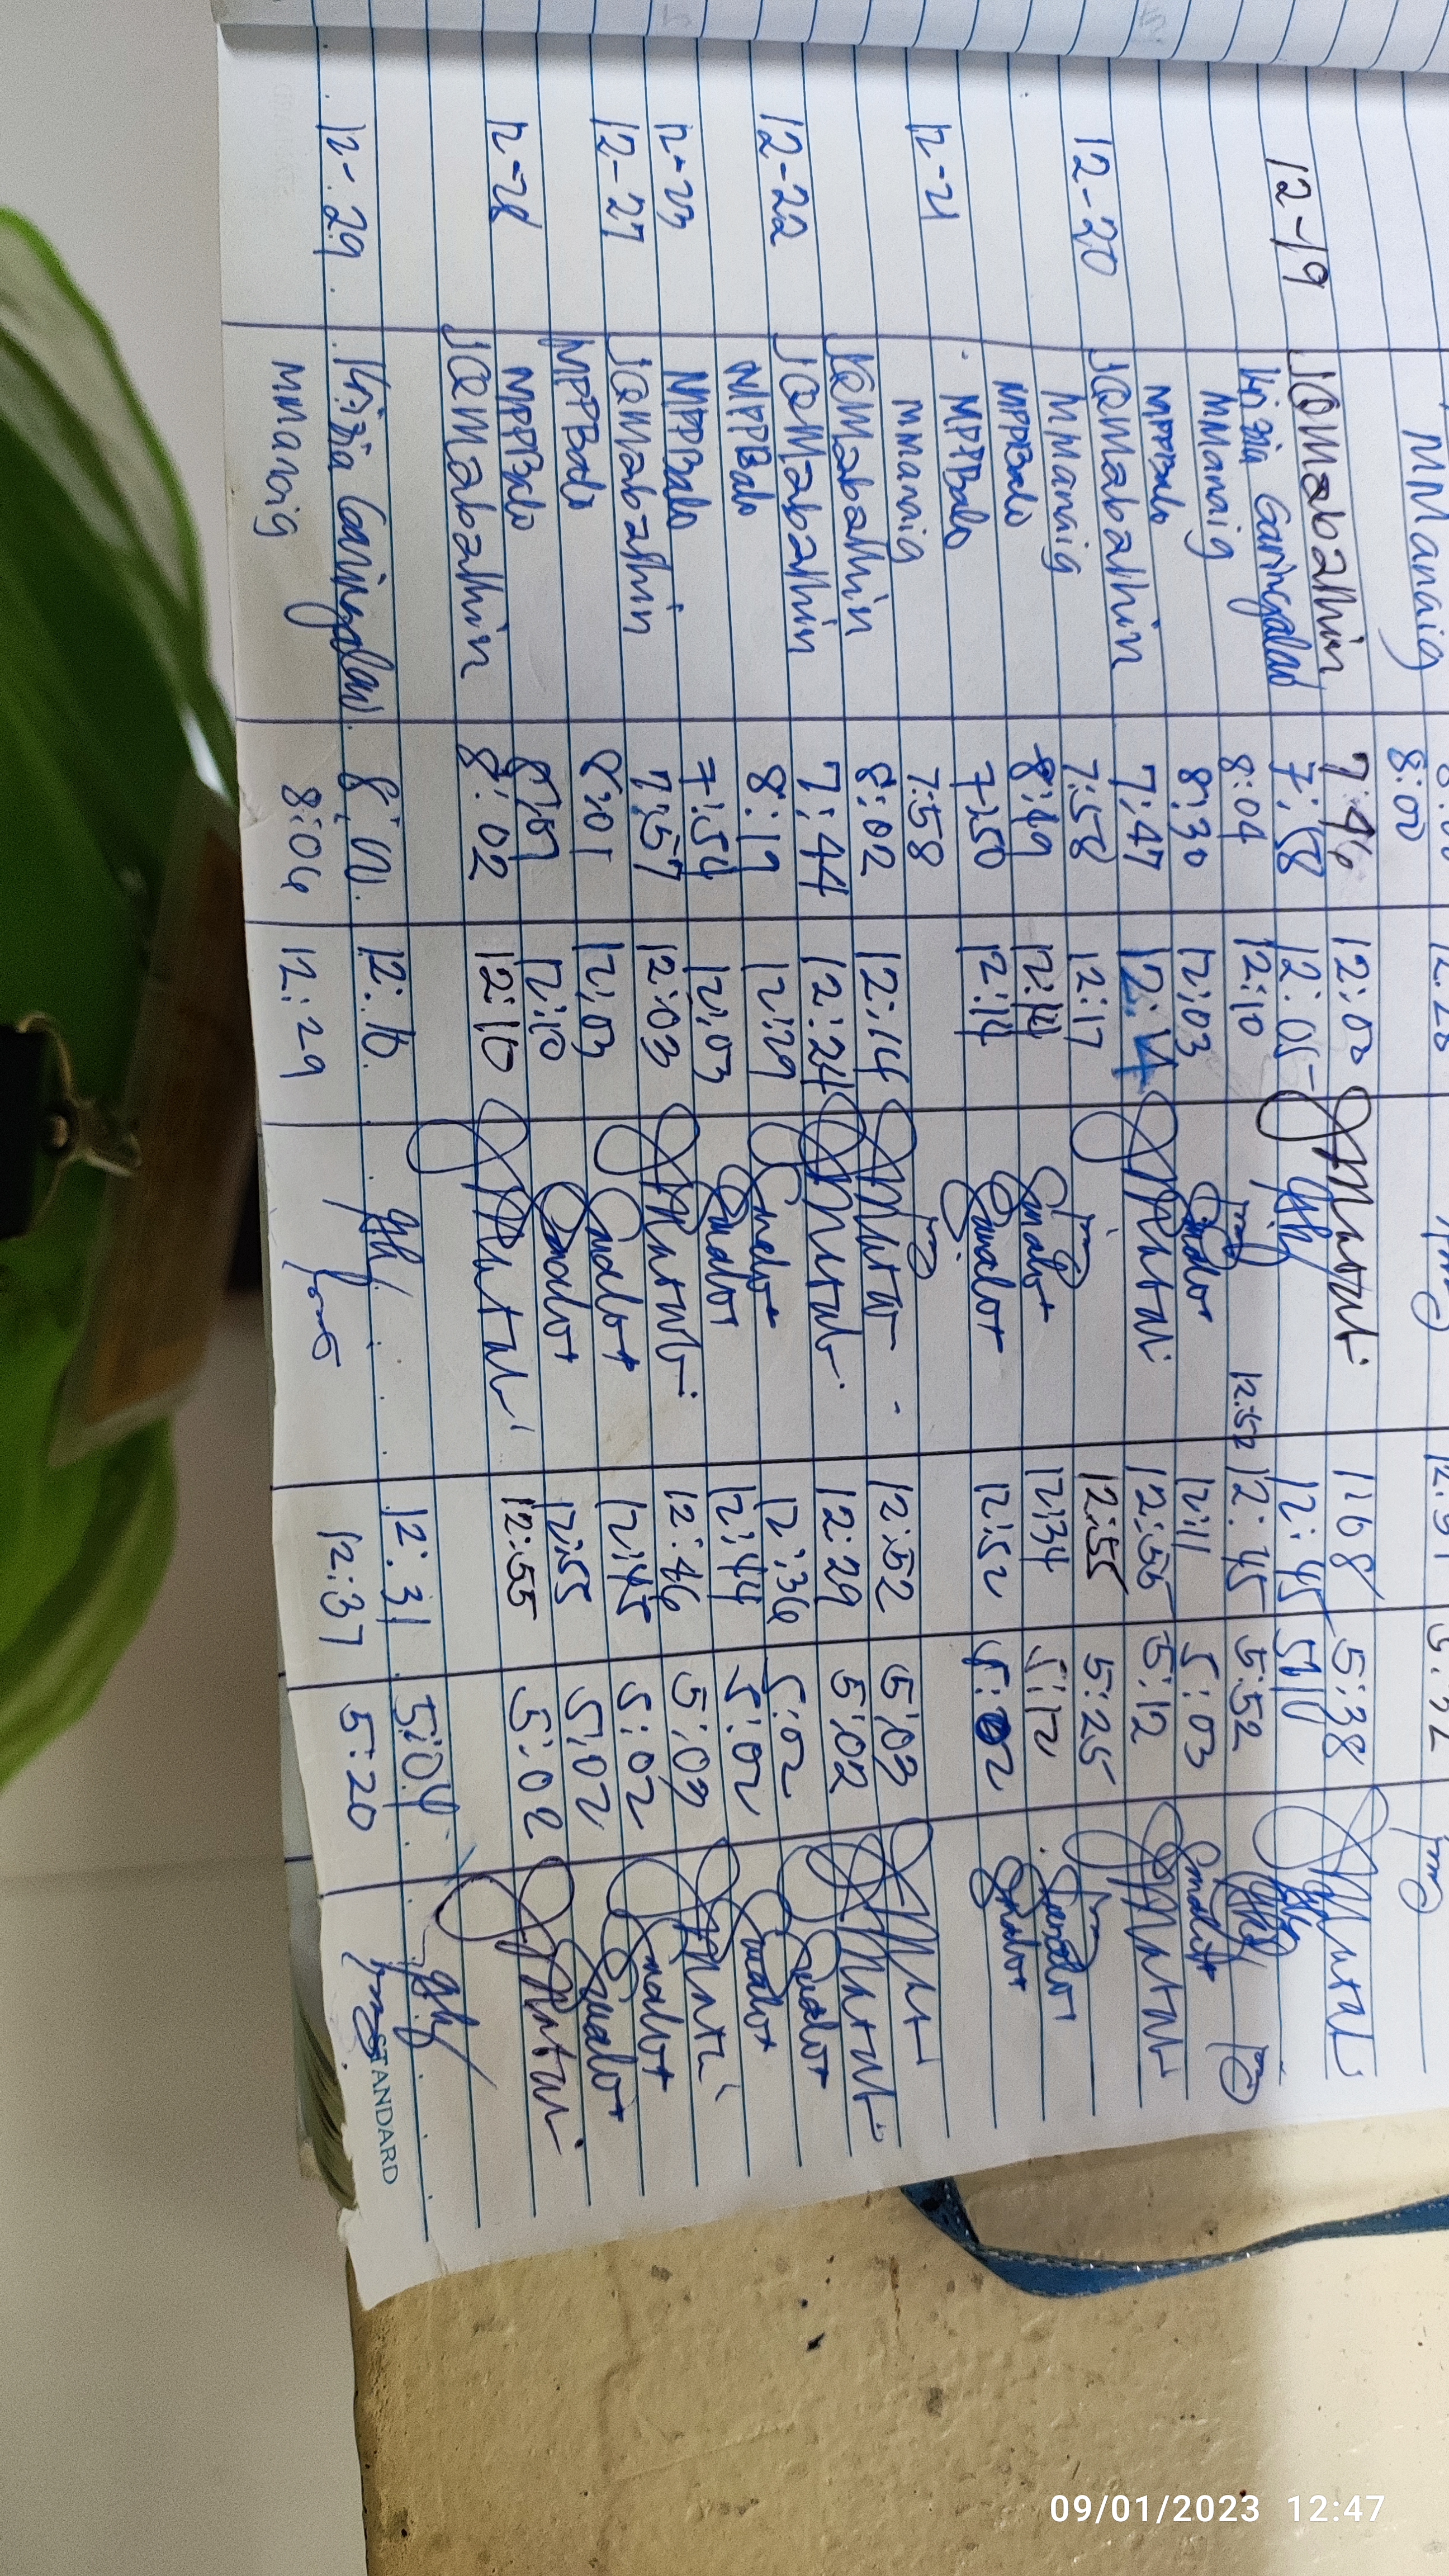 MManaig 8:00 12:28
12-19 JQMabalhin 7:46 12:00 1:08 5:38
Krizia Caringalan 7:58 12:05 12:45 5:10
MManaig 8:04 12:10 12:52 12:45 5:52
MPPBalo 8:30 12:03 12:11 5:03
12-20 JQMabalhin 7:47 12:14 12:55 5:12
MManaig 7:58 12:17 12:55 5:25
MPPBalo 8:19 12:14 12:34 5:12
MPPBalo 7:50 12:14 12:52 5:02
12-21 MManaig 7:58
JQMabalhin 8:02 12:14 12:52 5:03
12-22 JQMabalhin 7:44 12:24 12:29 5:02
MPPBalo 8:19 12:29 12:36 5:02
12-23 MPPBalo 7:54 12:03 12:44 5:02
12-27 JQMabalhin 7:57 12:03 12:46 5:02
MPPBalo 8:01 12:03 12:45 5:02
12-28 MPPBalo 12:10 12:55 5:02
JQMabalhin 8:02 12:10 12:55 5:02
12-29 Krizia Caringalan 12:10 12:31 5:04
MManaig 8:06 12:29 12:37 5:20
STANDARD
09/01/2023 12:47